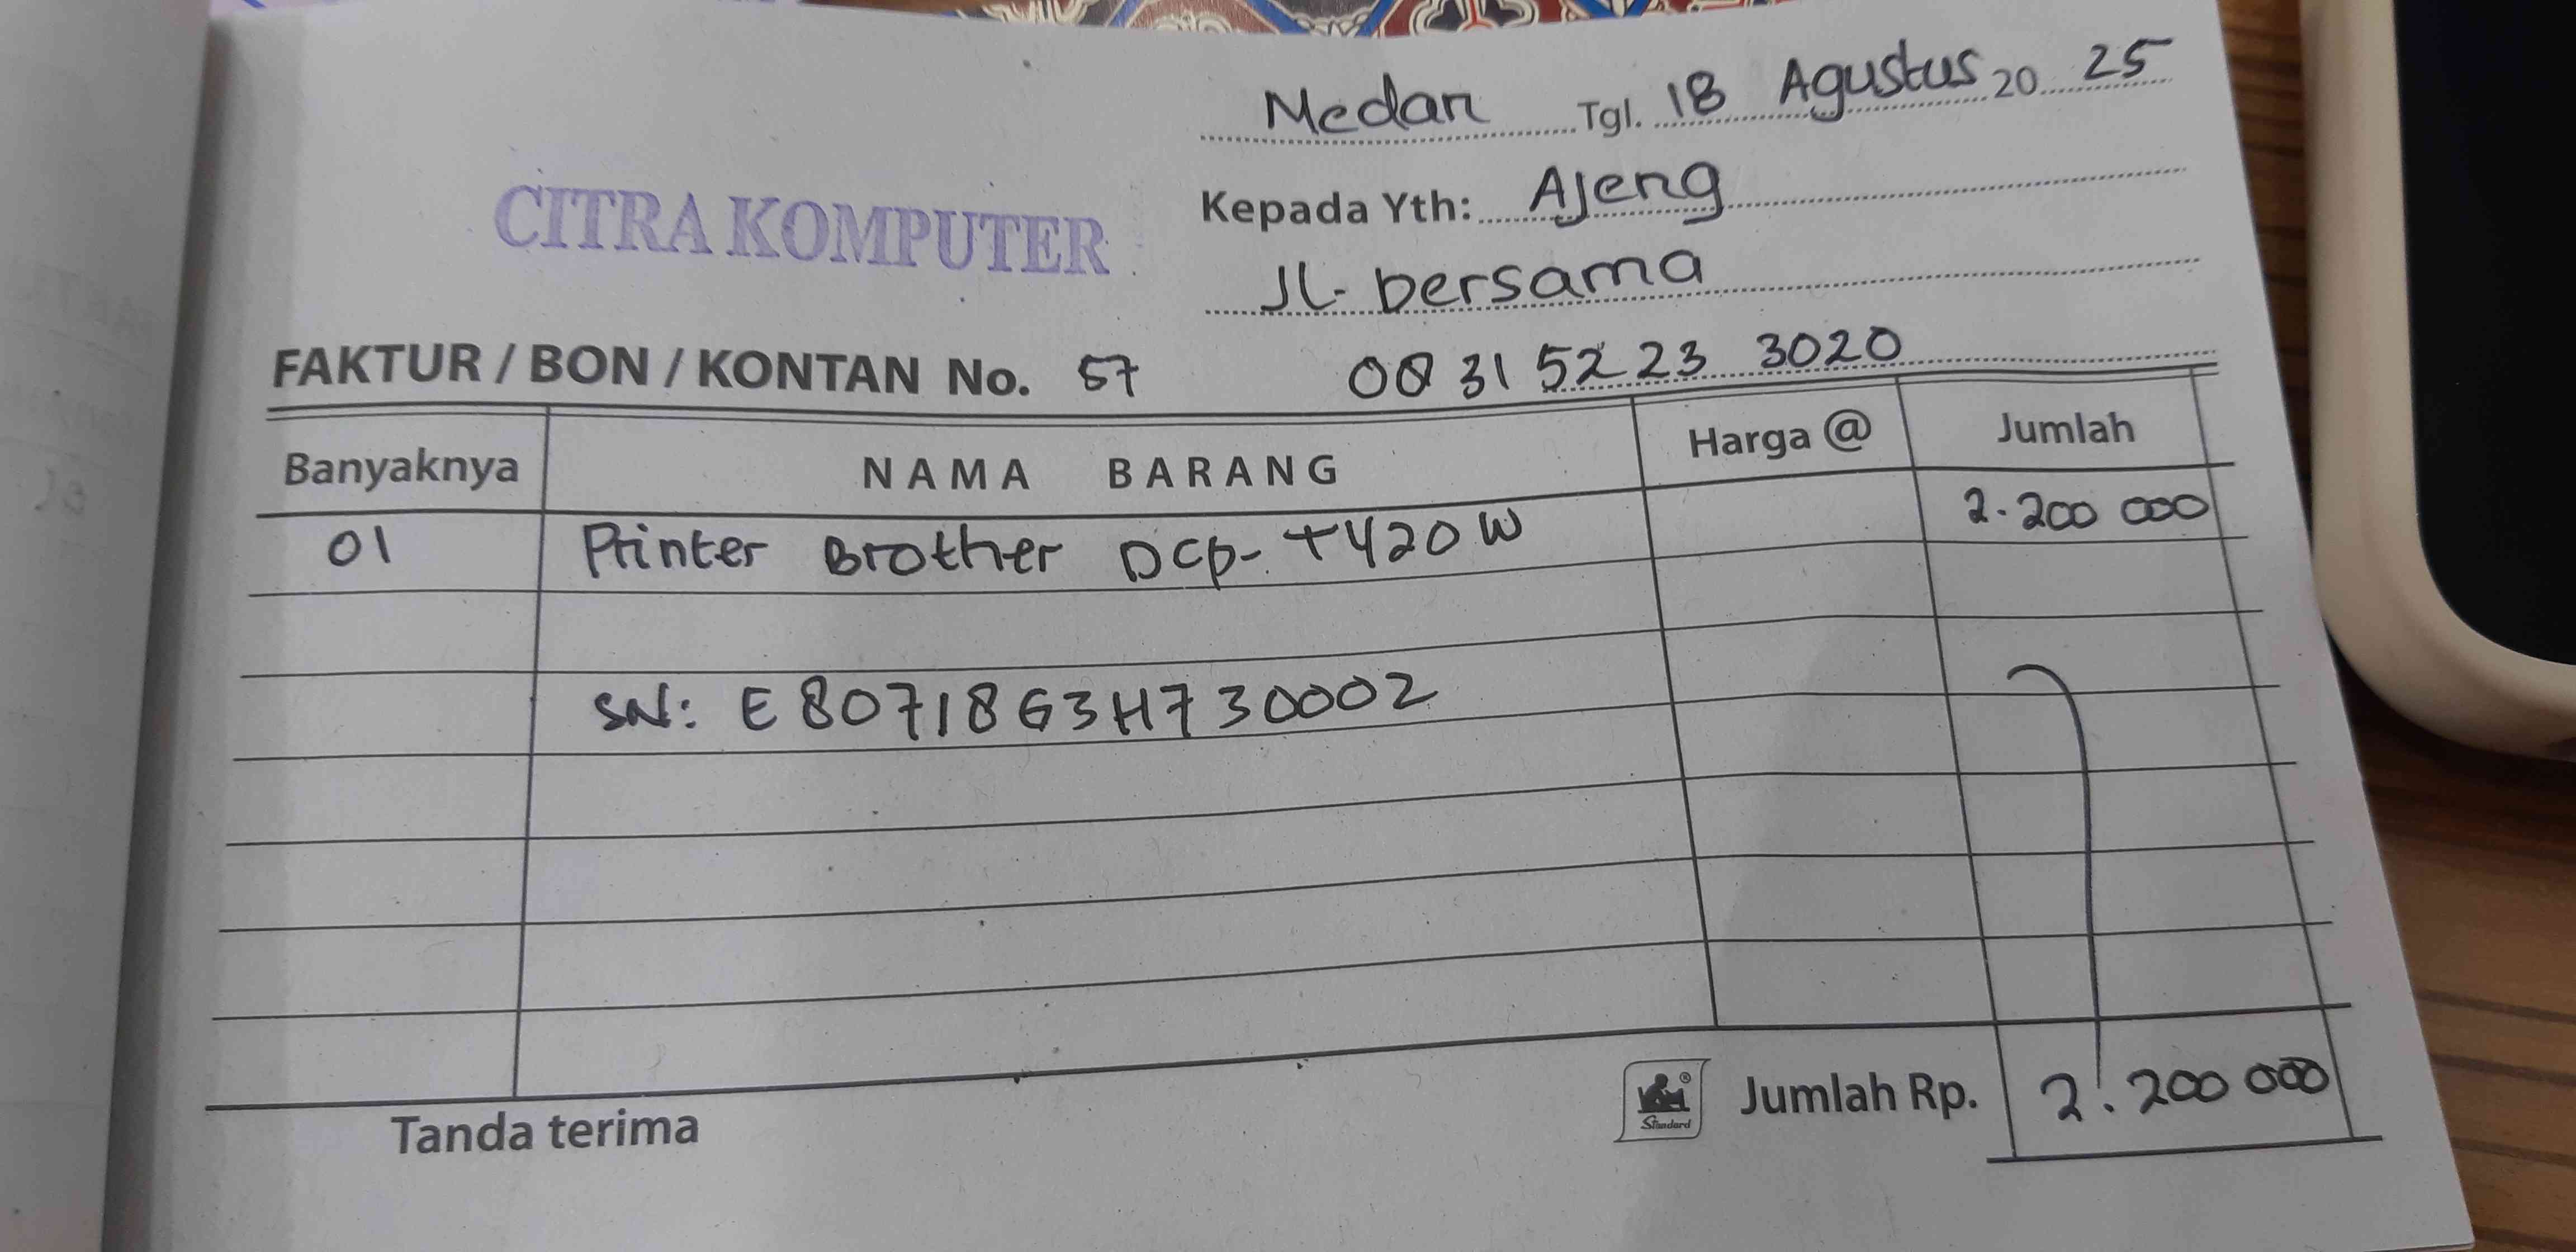 Medan Tgl. 18 Agustus 20 25
CITRA KOMPUTER
Kepada Yth: Ajeng
Jl. bersama
FAKTUR / BON / KONTAN No. 57 0831 5223 3020
Banyaknya NAMA BARANG Harga @ Jumlah
01 Printer Brother DCP-T420W 2.200 000
SN: E80718G3H730002
Standard Jumlah Rp. 2.200 000
Tanda terima